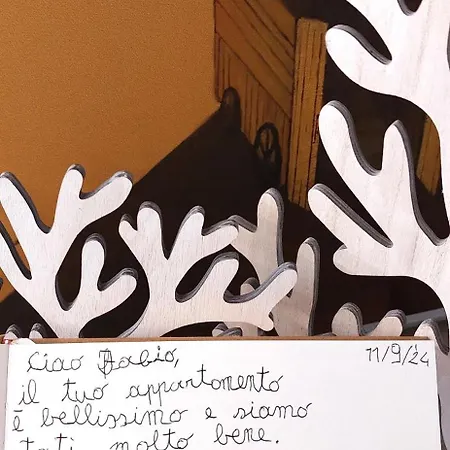 Ciao Fabio, 11/9/24
il tuo appartamento
è bellissimo e siamo
tati molto bene.